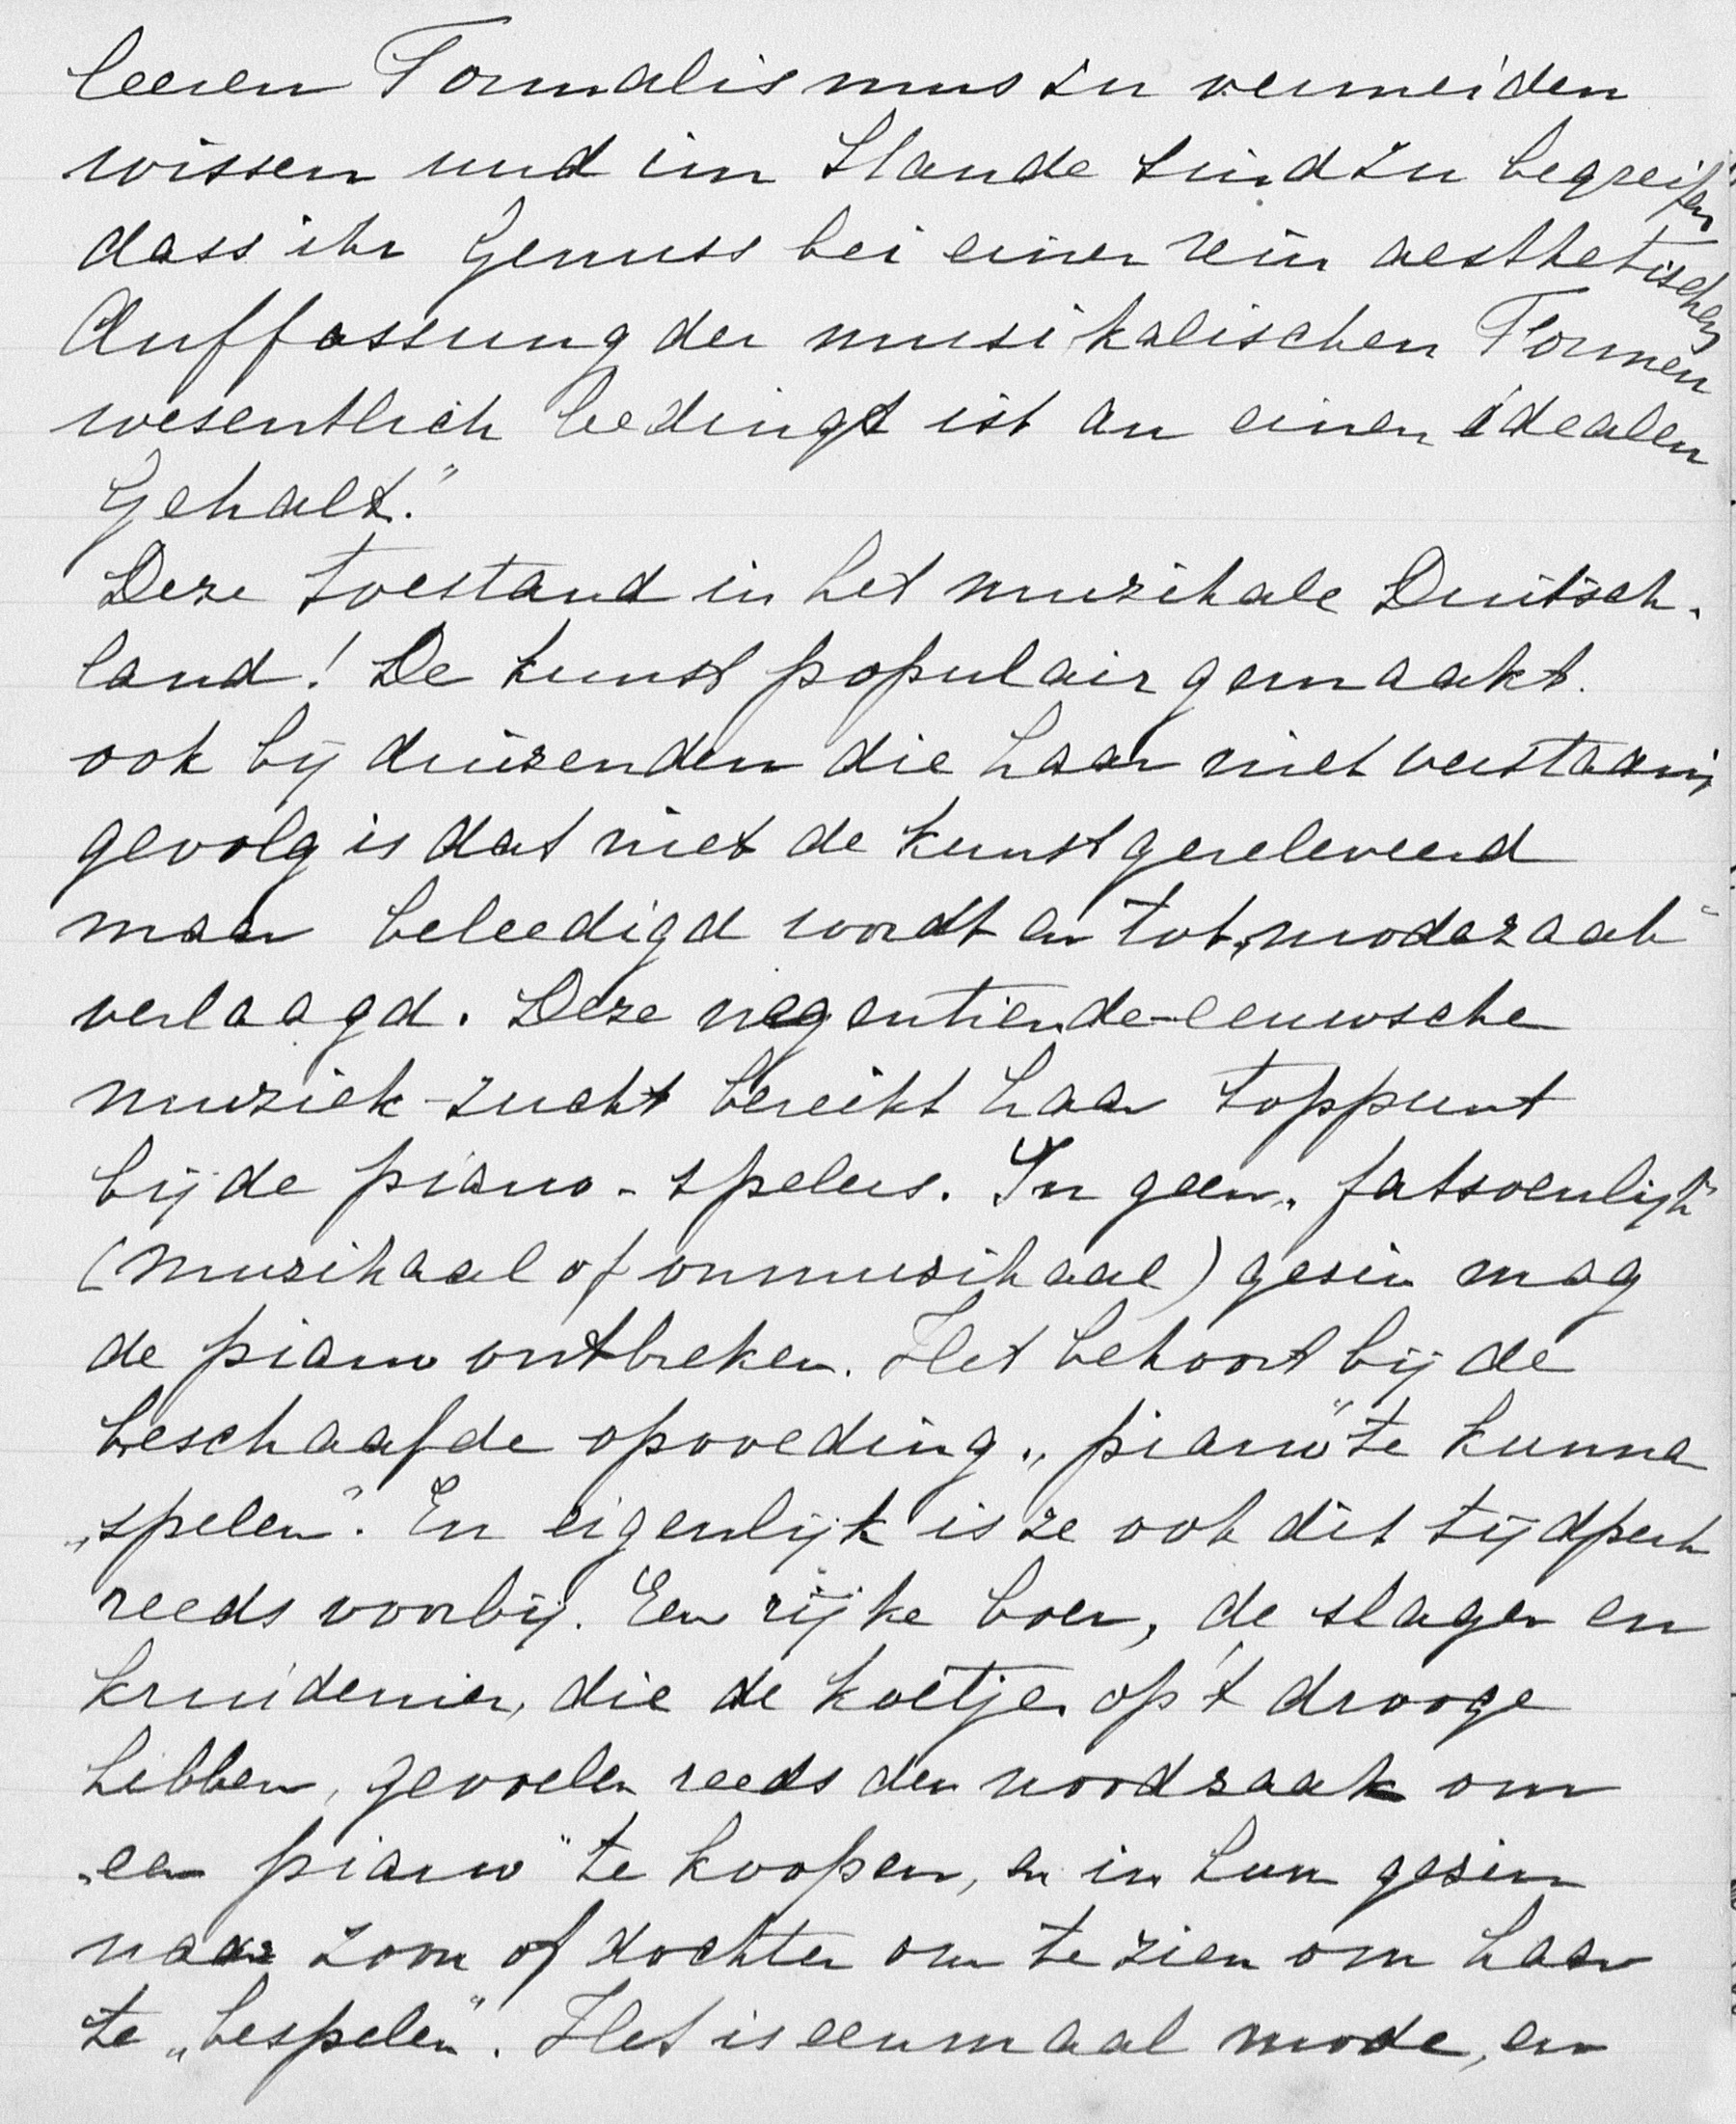 leeren Formalismus zu vermeiden
wissen und im Stande sind zu begreifen
dass ihr Genuss bei einer rein aesthetischen
Auffassung der musikalischen Formen
wesentlich bedingt ist an einen idealen
Gehalt."
Deze toestand in het muzikale Duitsch-
land! De kunst populair gemaakt.
ook bij duizenden die haar niet verstaan,
gevolg is dat niet de kunst gereleveerd
maar beleedigd wordt en tot „modezaak"
verlaagd. Deze negentiende-eeuwsche
muziek-zucht bereikt haar toppunt
bij de piano-spelers. In geen „fatsoenlijk"
(muzikaal of onmuzikaal) gezin mag
de piano ontbreken. Het behoort bij de
beschaafde opvoeding „piano" te kunnen
„spelen". En eigenlijk is ze ook dit tijdperk
reeds voorbij. Een rijke boer, de slager en
kruidenier, die de koetjes op 't drooge
hebben, gevoelen reeds den noodzaak om
„een piano" te koopen, en in hun gezin
naar zoon of dochter om te zien om haar
te „bespelen". Het is eenmaal mode, en